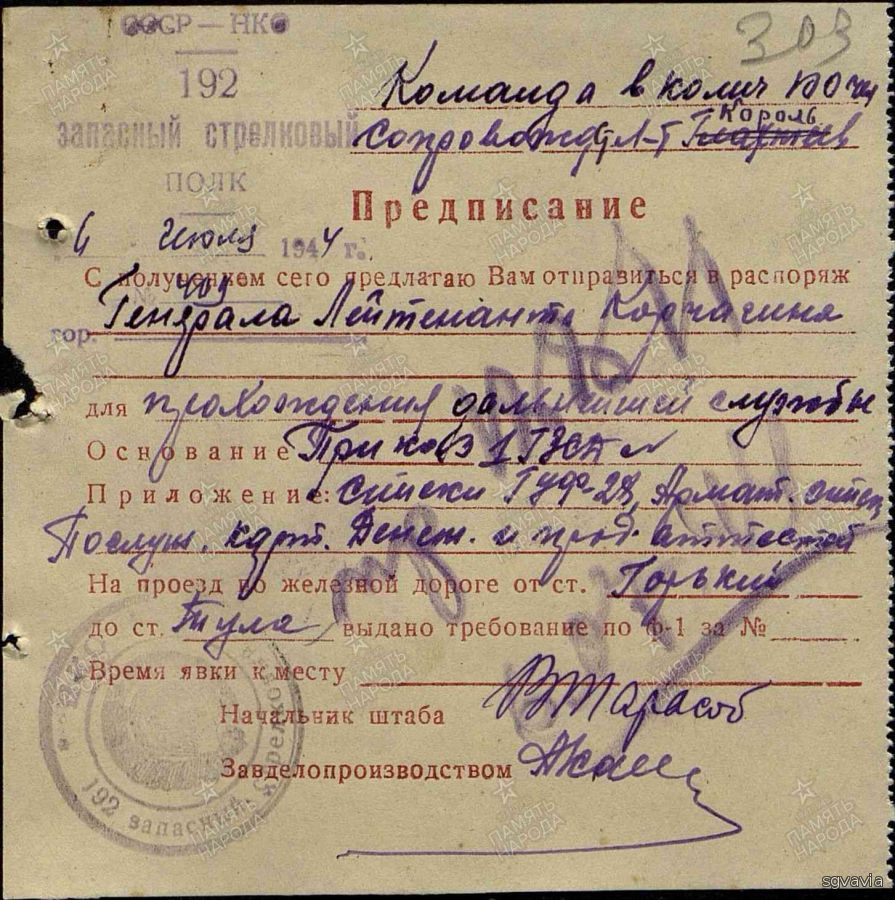 СССР — НКО
303
192
запасный стрелковый
ПОЛК
Команда в колич
Король
сопровожд
Предписание
6 Июля 1944 г.
С получением сего предлагаю Вам отправиться в распоряж
№
Генерала Лейтенанта Корчагина
гор.
для прохождения дальнейшей службы
Основание Приказ
Приложение: списки Армат. списк
Послуж. карт. Денеж. и прод. аттестат
На проезд по железной дороге от ст. Горький
до ст. Тула выдано требование по ф-1 за №
Время явки к месту
Начальник штаба ВТарасов
Завделопроизводством
192 запасный стрелко
ПАМЯТЬ НАРОДА
sgvavia